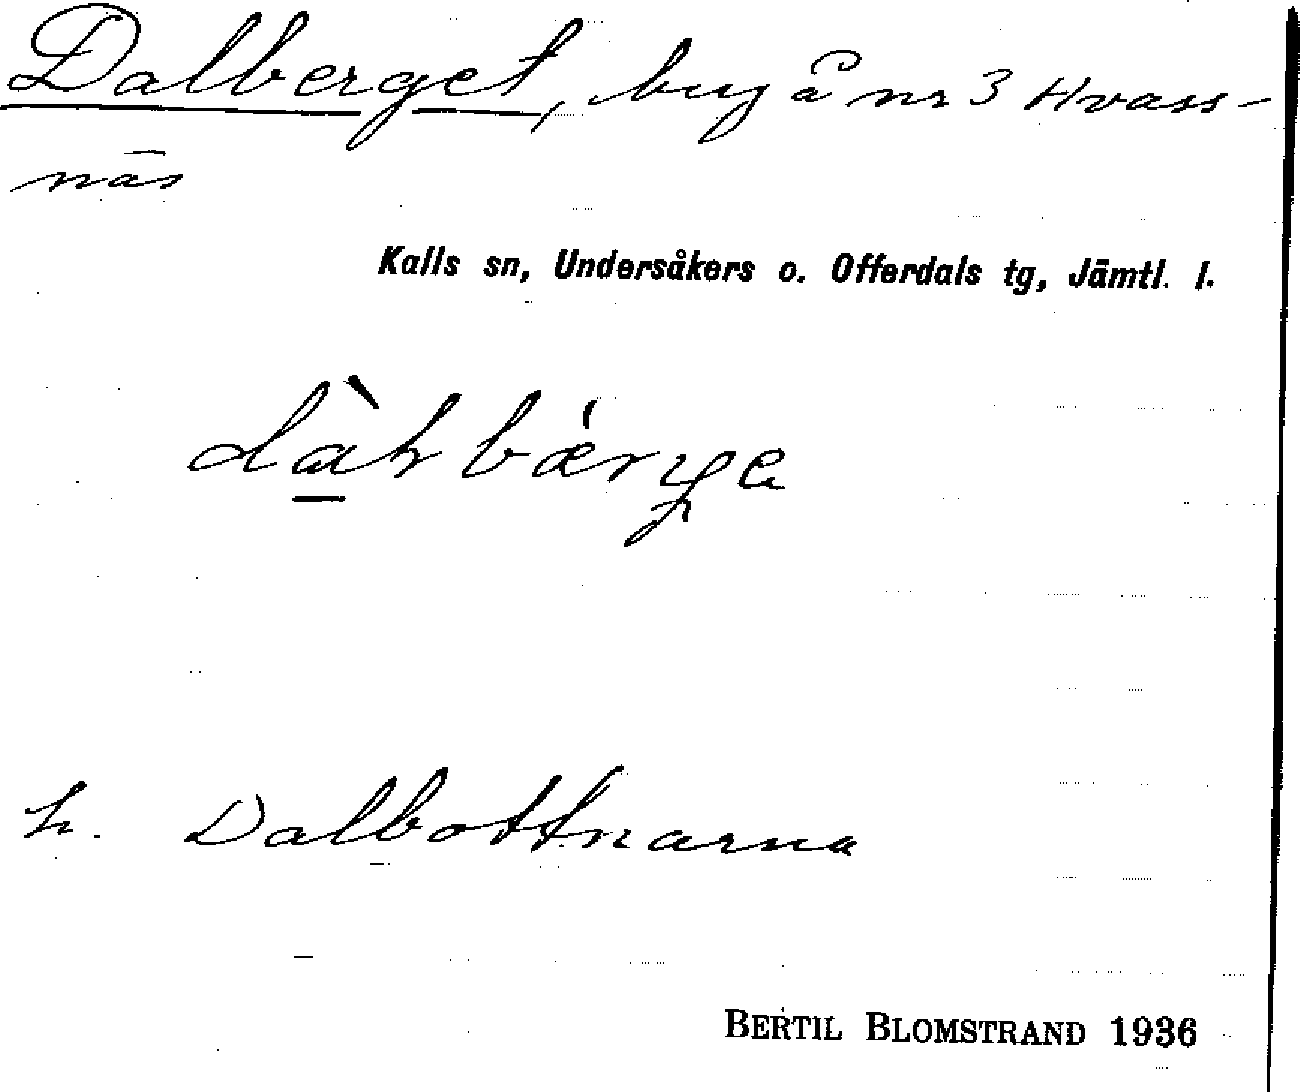 Dalberget, byg å nr 3 Hvass-
näs
Kalls sn, Undersåkers o. Offerdals tg, Jämtl. l.
h. Dalbottnarna
BERTIL BLOMSTRAND 1936